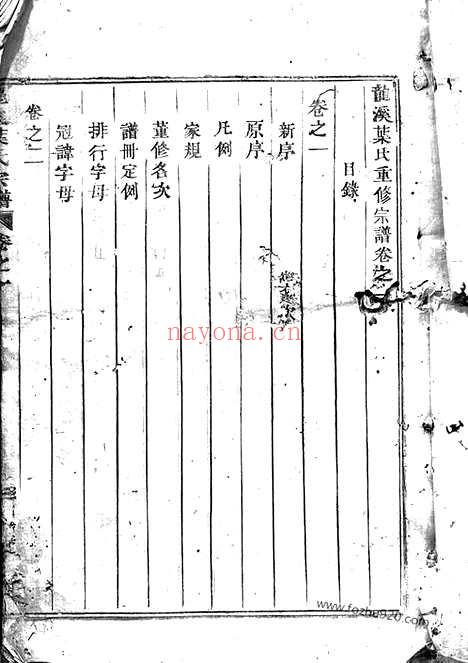 龍溪葉氏重修宗譜卷之一
目錄
卷之一
新序
原序
凡例
家規
董修名次
譜冊定例
排行字母
冠諱字母
卷之二
葉氏宗譜 卷之一
nayona.cn
www.fozhu920.com